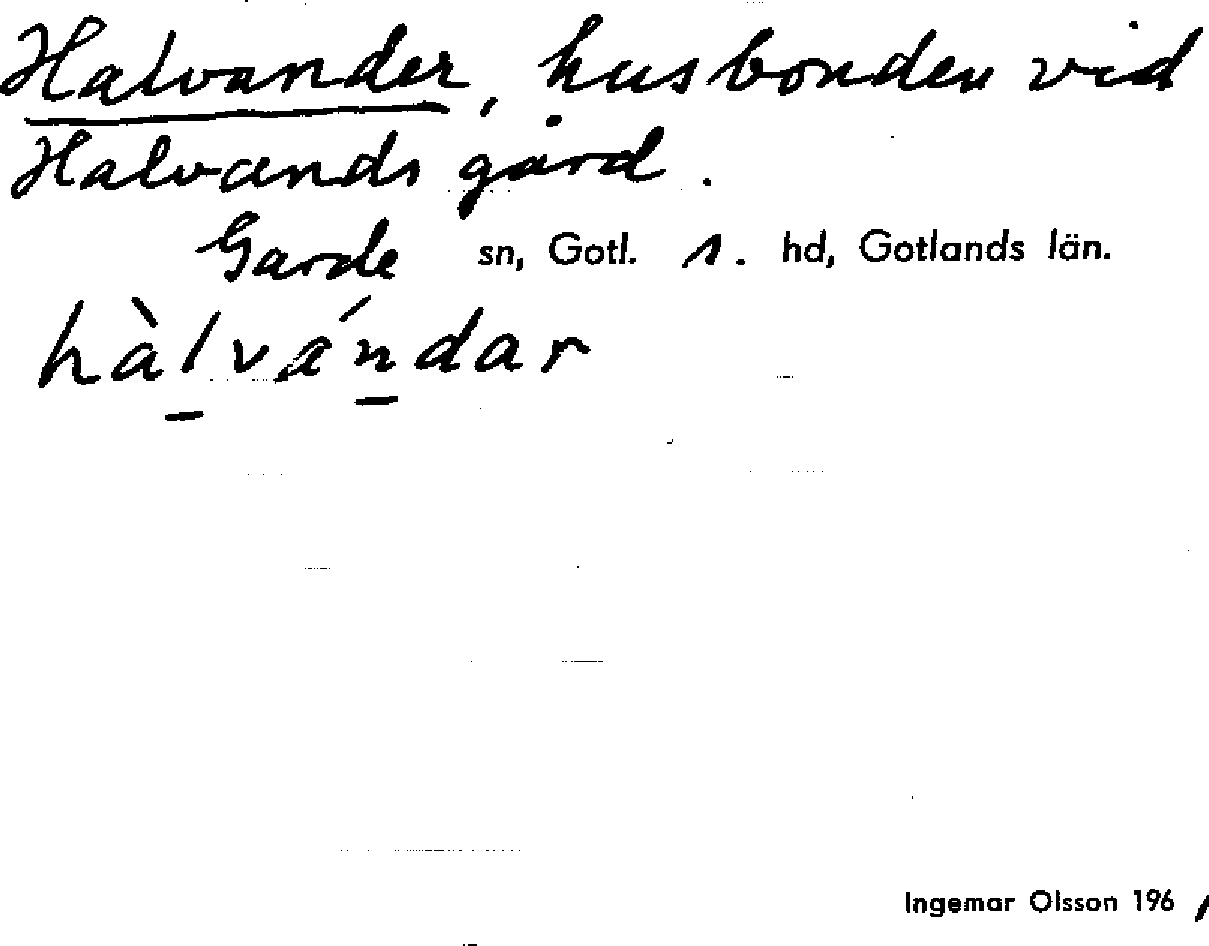 Halvander, husbonden vid
Halvands gård.
Garde sn, Gotl. s. hd, Gotlands län.
hàlvándar
Ingemar Olsson 1961